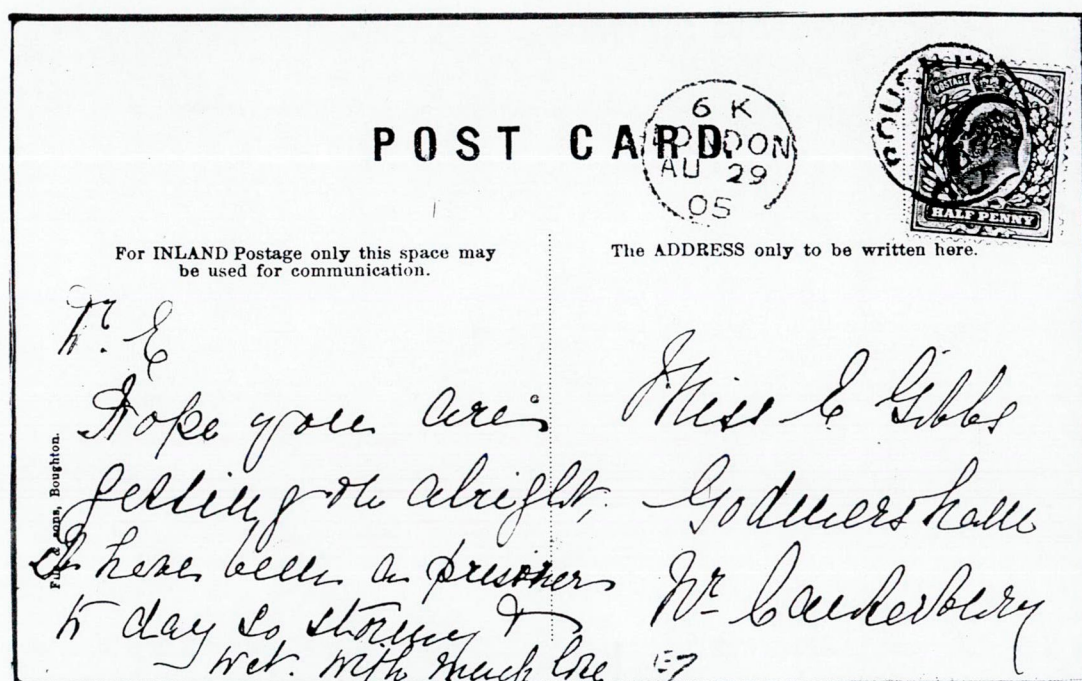 POST CARD.
6 K
LONDON
AU 29
05
HALF PENNY
For INLAND Postage only this space may
be used for communication.
The ADDRESS only to be written here.
E
Hope you are
getting on alright,
I have been a prisoner
to day so stormy &
wet. with much love
Miss E Gibbs
Godmersham
Nr Canterbury
ons, Boughton.